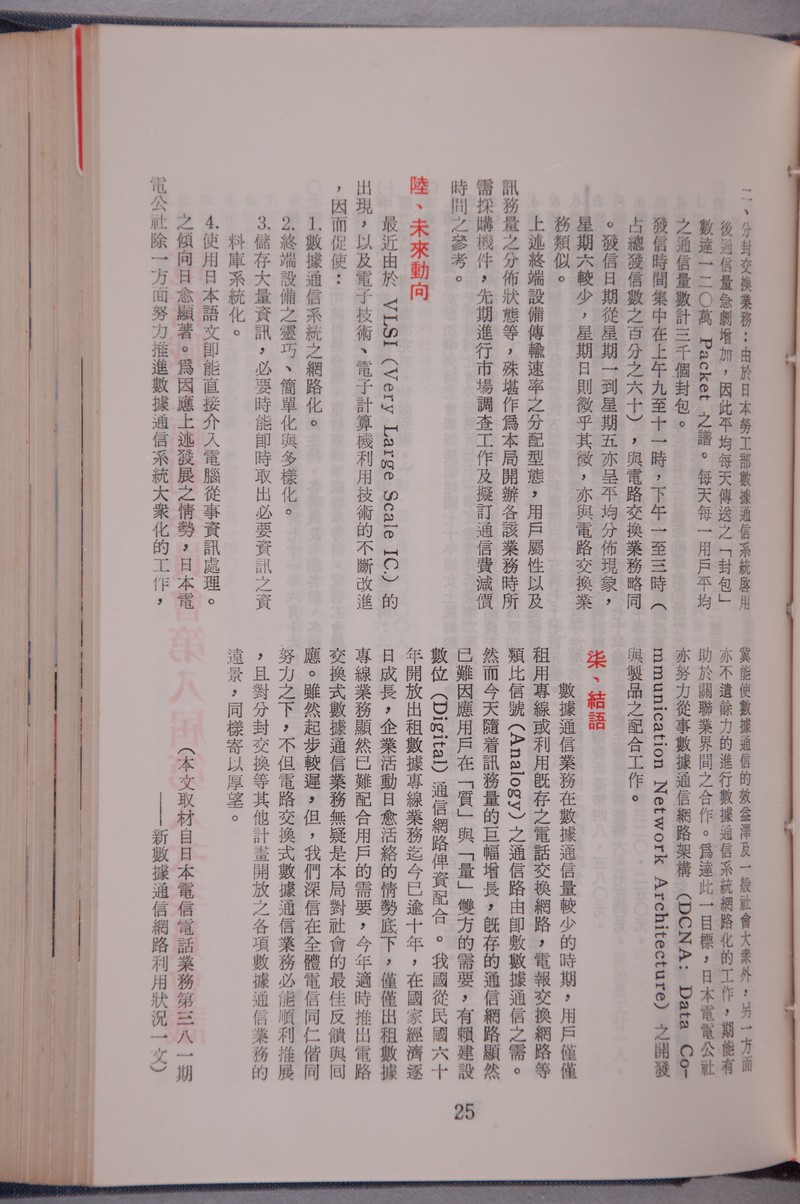 二、分封交換業務：由於日本勞工部數據通信系統啓用
後通信量急劇增加，因此平均每天傳送之「封包」
數達一二〇萬 Packet 之譜。每天每一用戶平均
之通信量數計三千個封包。
發信時間集中在上午九至十一時，下午一至三時（
占總發信數之百分之六十），與電路交換業務略同
。發信日期從星期一到星期五亦呈平均分佈現象，
星期六較少，星期日則微乎其微，亦與電路交換業
務類似。
上述終端設備傳輸速率之分配型態，用戶屬性以及
訊務量之分佈狀態等，殊堪作爲本局開辦各該業務時所
需採購機件，先期進行市場調查工作及擬訂通信費減價
時間之參考。
陸、未來動向
最近由於 VLSI (Very Large Scale IC.) 的
出現，以及電子技術、電子計算機利用技術的不斷改進
，因而促使：
1. 數據通信系統之網路化。
2. 終端設備之靈巧、簡單化與多樣化。
3. 儲存大量資訊，必要時能即時取出必要資訊之資
料庫系統化。
4. 使用日本語文即能直接介入電腦從事資訊處理。
之傾向日愈顯著。爲因應上述發展之情勢，日本電
電公社除一方面努力推進數據通信系統大衆化的工作，
冀能使數據通信的效益澤及一般社會大衆外，另一方面
亦不遺餘力的進行數據通信系統網路化的工作，期能有
助於關聯業界間之合作。爲達此一目標，日本電電公社
亦努力從事數據通信網路架構 (DCNA: Data Co-
mmunication Network Architecture) 之開發
與製品之配合工作。
柒、結語
數據通信業務在數據通信量較少的時期，用戶僅僅
租用專線或利用既存之電話交換網路，電報交換網路等
類比信號 (Analogy) 之通信路由即敷數據通信之需。
然而今天隨着訊務量的巨幅增長，既存的通信網路顯然
已難因應用戶在「質」與「量」雙方的需要，有賴建設
數位 (Digital) 通信網路俾資配合。我國從民國六十
年開放出租數據專線業務迄今已逾十年，在國家經濟逐
日成長，企業活動日愈活絡的情勢底下，僅僅出租數據
專線業務顯然已難配合用戶的需要，今年適時推出電路
交換式數據通信業務無疑是本局對社會的最佳反饋與回
應。雖然起步較遲，但，我們深信在全體電信同仁偕同
努力之下，不但電路交換式數據通信業務必能順利推展
，且對分封交換等其他計畫開放之各項數據通信業務的
遠景，同樣寄以厚望。
（本文取材自日本電信電話業務第三八一期
——新數據通信網路利用狀況一文）
25